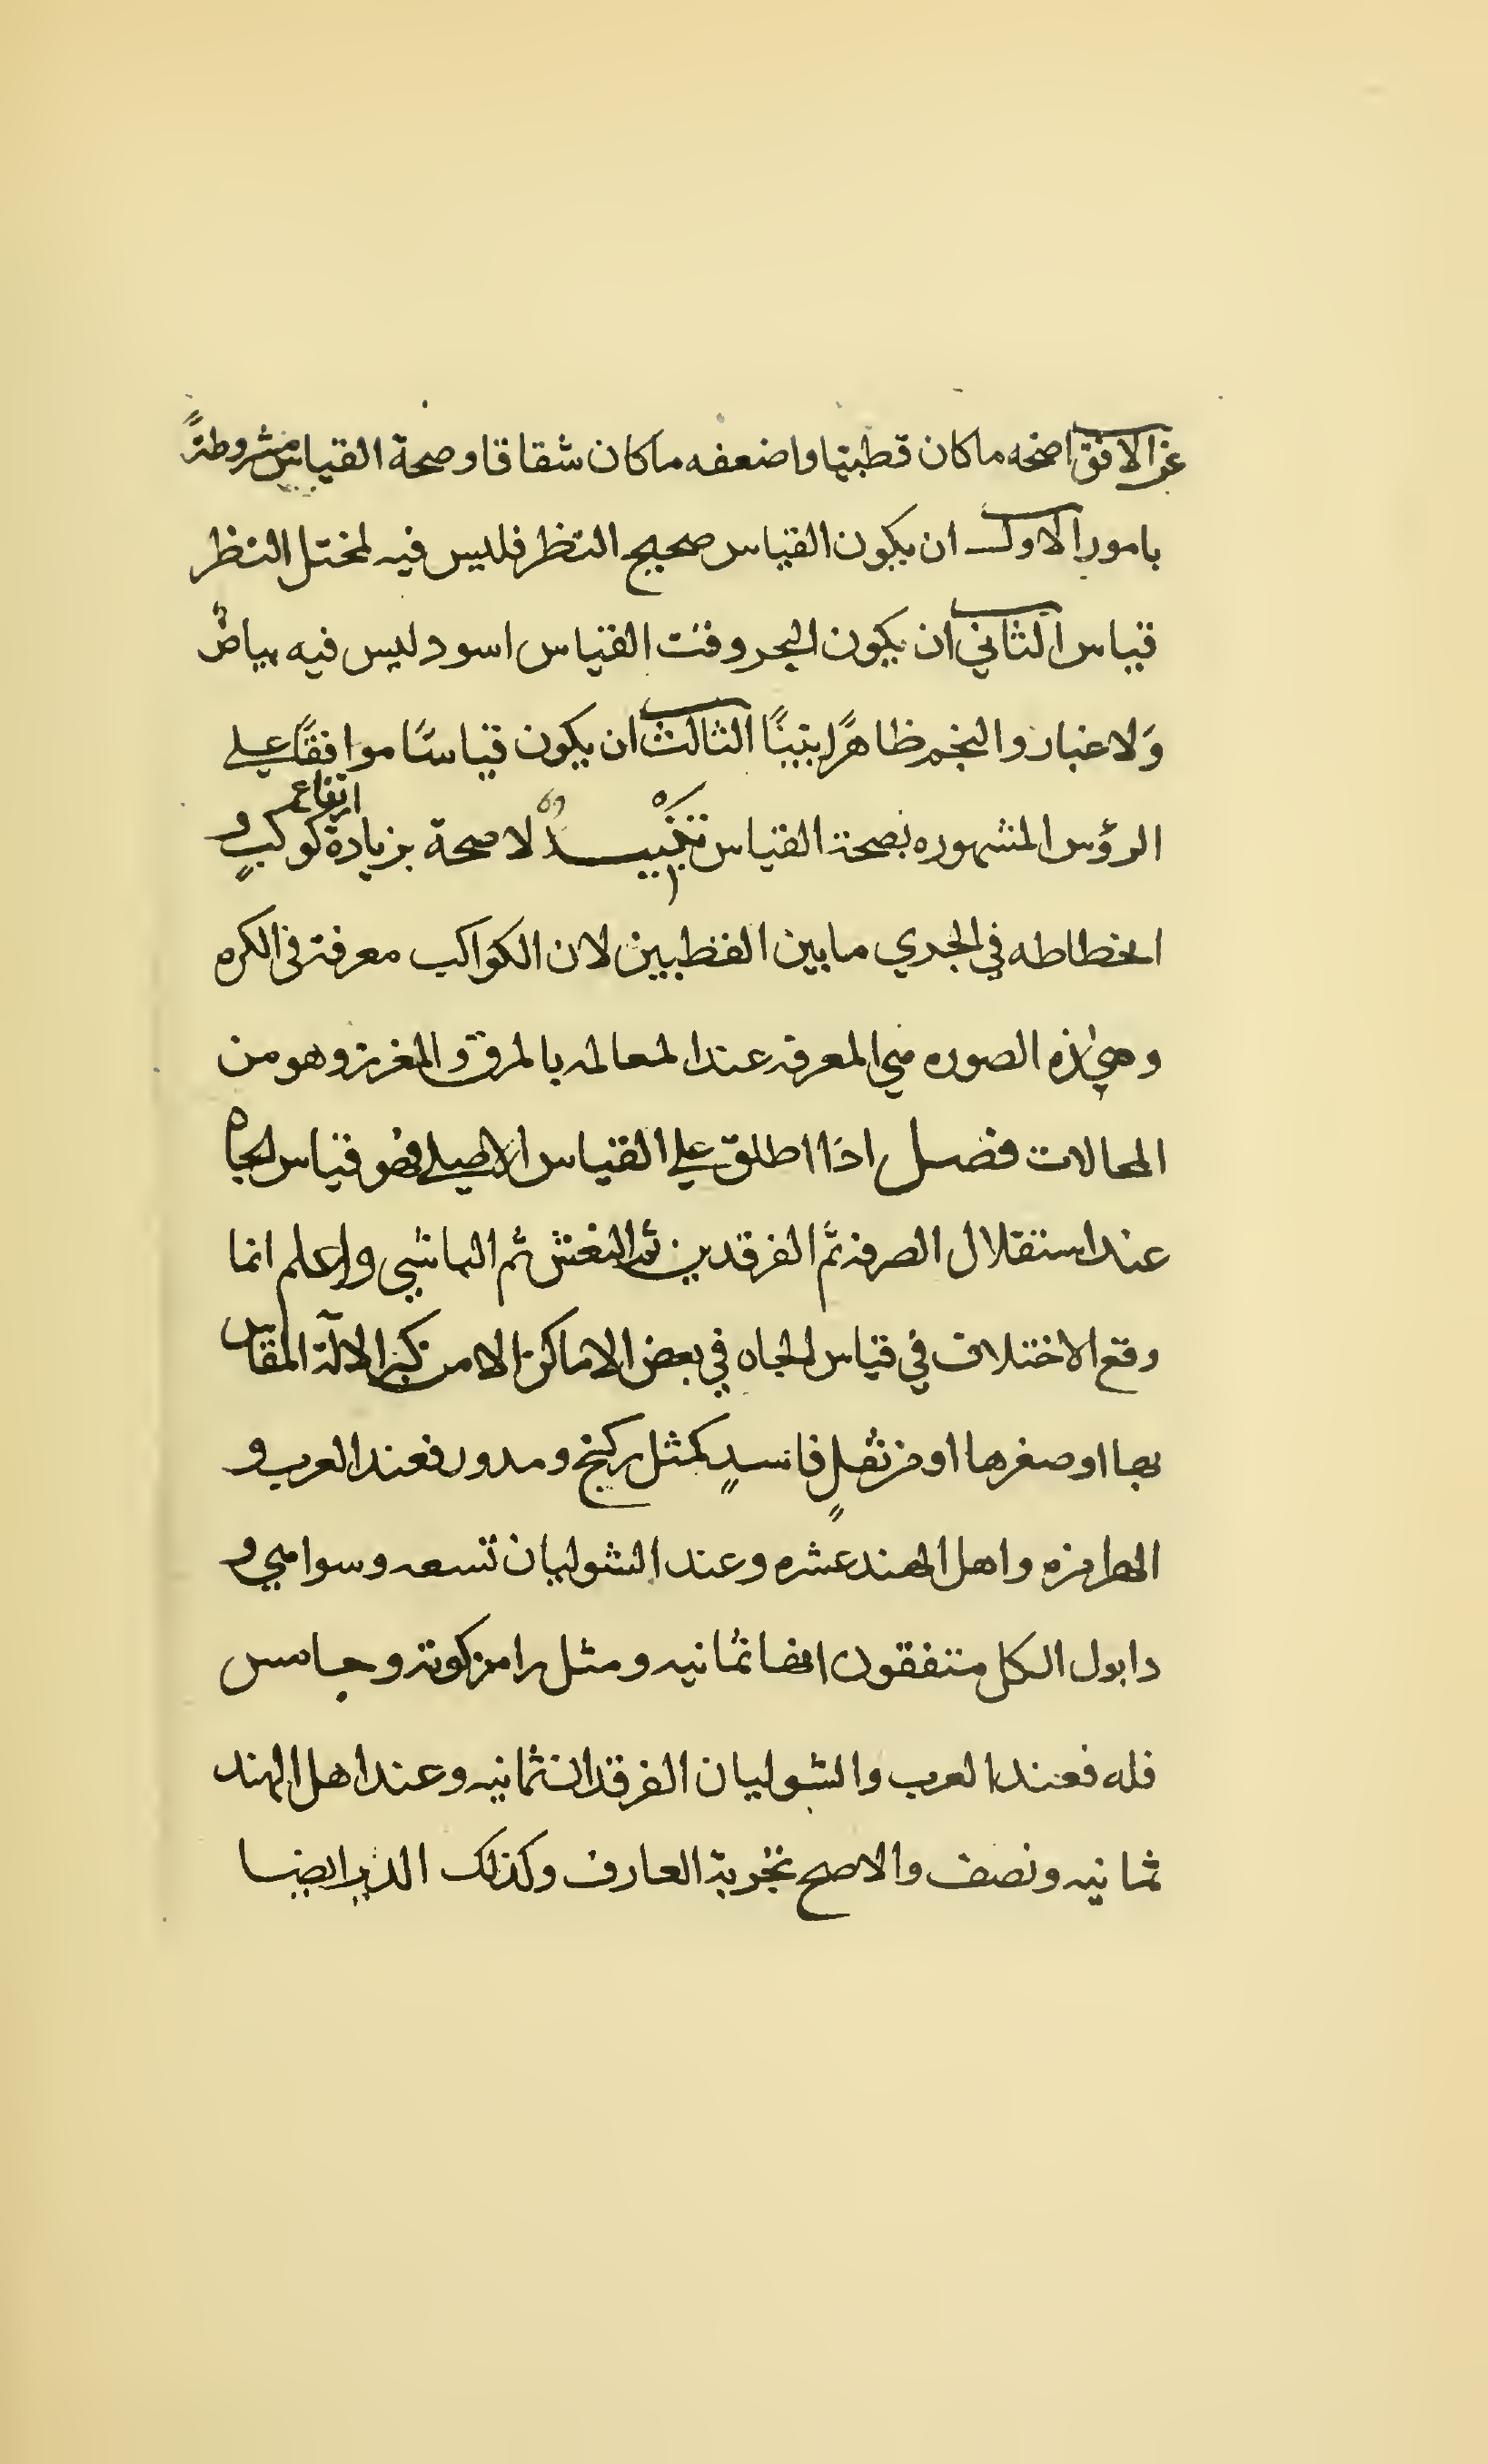 عن الافق اصحه ماكان قطبيا واضعفه ماكان شقاقا وصحة القياس مشروطةً
بامور الاول ان يكون القياس صحيح النظر فليس فيه لمختل النظر
قياس الثاني ان يكون البحر وقت القياس اسود ليس فيه بياضٌ
وَلا غبار والنجم ظاهرًا بينًا الثالث ان يكون قياسًا موافقًا علي
الرؤس المشهوره بصحة القياس تنبيه لا صحة بزيادة ارتفاع كوكبٍ و
انحطاطه في الجدي مابين القطبين لان الكواكب معرفة في الكره
وهي هذه الصوره هي المعرفه عند المعالمه بالمرق والمغزر وهو من
المحالات فصل اذا اطلق علي القياس الاصلي فهو قياس الجاه
عند استقلال الصرفه ثم الفرقدين ثم النعش ثم الماشي واعلم انما
وقع الاختلاف في قياس الجاه في بعض الاماكن الا من كبر الالآة المقاس
بها او صغرها او من نقلٍ فاسدٍ كمثل ركنج ومدور فعند العرب و
الهرامزه واهل الهند عشره وعند الشوليان تسعه وسوامي و
دابول الكل متفقون انها ثمانيه ومثل رامن كوته وجامس
فله فعند العرب والشوليان الفرقدان ثمانيه وعند اهل الهند
ثمانيه ونصف والاصح تجربة العارف وكذلك الديرايضا